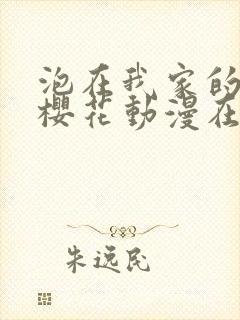 泡在我家的
樱花動漫在
朱远民